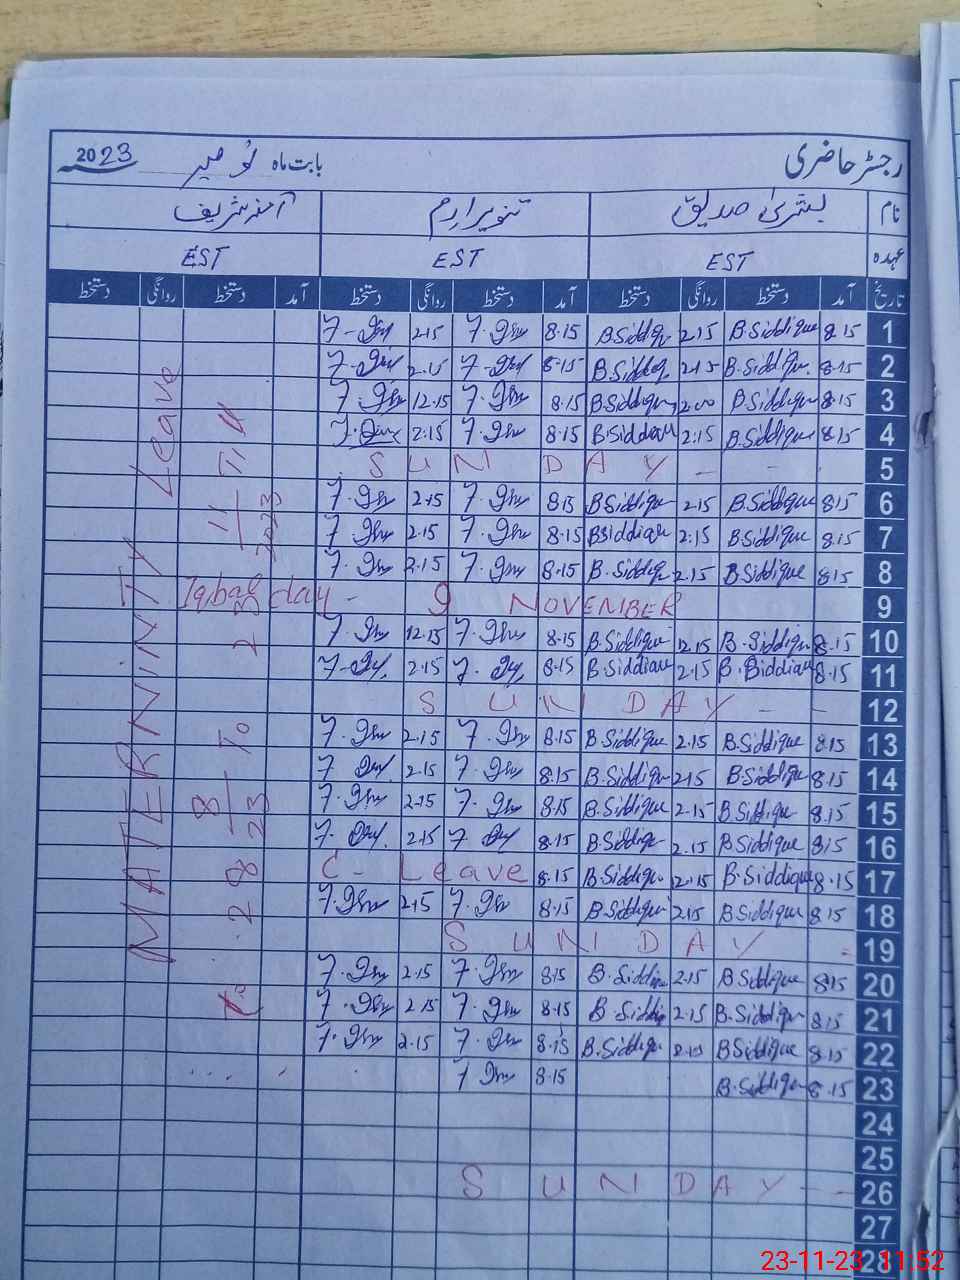 رجسٹر حاضری بابت ماہ نومبر 2023
نام بشریٰ صدیق تنویر ارم آمنہ شریف
عہدہ EST EST EST
تاریخ آمد دستخط روانگی دستخط آمد دستخط روانگی دستخط آمد دستخط روانگی دستخط
1 8.15 B.Siddique 2.15 B.Siddiq 8.15 2.15
2 8.15 B.Siddique. 2.15 B.Siddiq. 8.15 2.15
3 8.15 B.Siddique 12.00 B.Siddique 8.15 12.15
4 8.15 B.Siddique 2.15 B.Siddique 8.15 2.15
5 SUNDAY - -
6 8.15 B.Siddique 2.15 B.Siddique 8.15 2.15
7 8.15 B.Siddique 2.15 B.Siddique 8.15 2.15
8 8.15 B.Siddique 2.15 B.Siddiq 8.15 2.15
9 Iqbal day - 9 NOVEMBER
10 8.15 B.Siddique 12.15 B.Siddique 8.15 12.15
11 8.15 B.Siddique 2.15 B.Siddique 8.15 2.15
12 SUNDAY - -
13 8.15 B.Siddique 2.15 B.Siddique 8.15 2.15
14 8.15 B.Siddique 2.15 B.Siddique 8.15 2.15
15 8.15 B.Siddique 2.15 B.Siddique 8.15 2.15
16 8.15 B.Siddique 2.15 B.Siddique 8.15 2.15
17 8.15 B.Siddique 12.15 B.Siddique 8.15 C- Leave
18 8.15 B.Siddique 2.15 B.Siddique 8.15 2.15
19 SUNDAY -
20 8.15 B.Siddique 2.15 B.Siddiq 8.15 2.15
21 8.15 B.Siddique 2.15 B.Siddi 8.15 2.15
22 8.15 B.Siddique 2.15 B.Siddique 8.15 2.15
23 8.15 B.Siddique 8.15
24
25
26 SUNDAY - -
27
28
MATERNINTY Leave
28 8/23 To 23 11/2023 Till
23-11-23 11:52